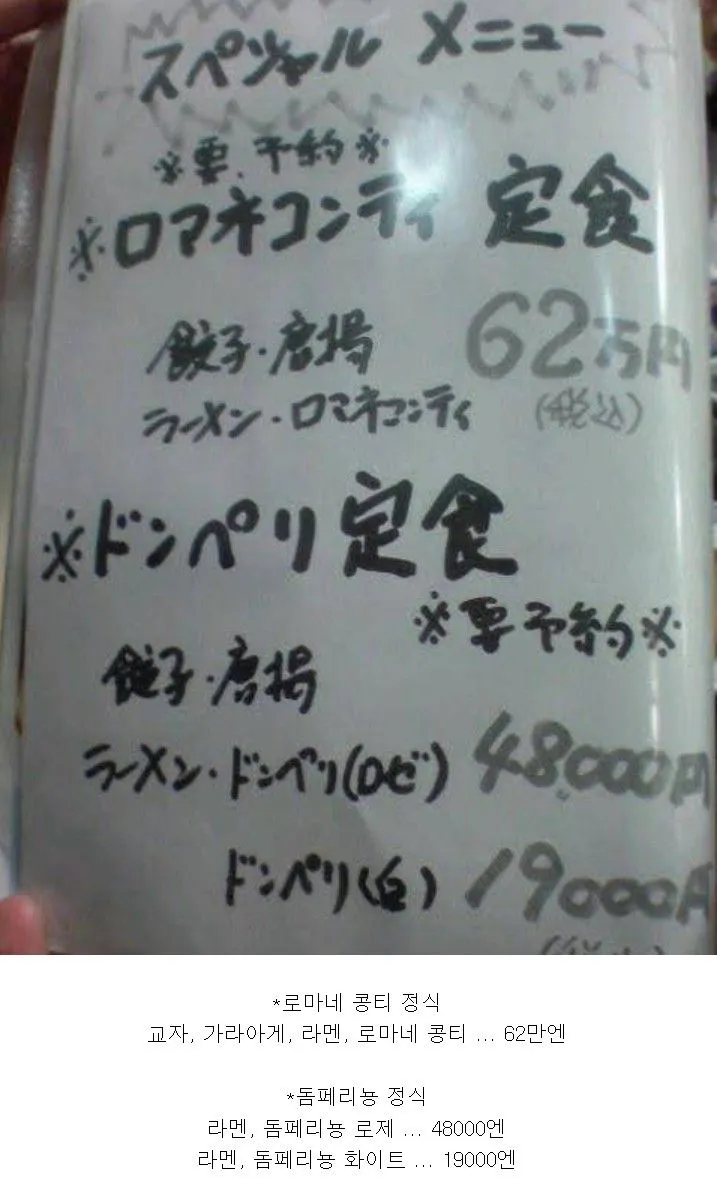 スペシャル メニュー
※要.予約※
※ロマネコンティ 定食
餃子・唐揚 62万円
ラーメン・ロマネコンティ (税込)
※ドンペリ 定食
※要予約※
餃子・唐揚
ラーメン・ドンペリ(ロゼ) 48,000円
ドンペリ(白) 19000円
*로마네 콩티 정식
교자, 가라아게, 라멘, 로마네 콩티 ... 62만엔
*돔페리뇽 정식
라멘, 돔페리뇽 로제 ... 48000엔
라멘, 돔페리뇽 화이트 ... 19000엔